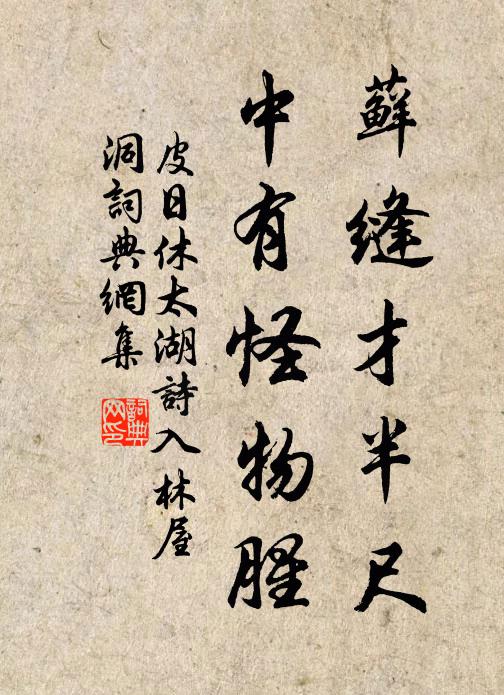 蘚縫才半尺
中有怪物腥
皮日休太湖詩入林屋
洞詞典網集
詞典网印